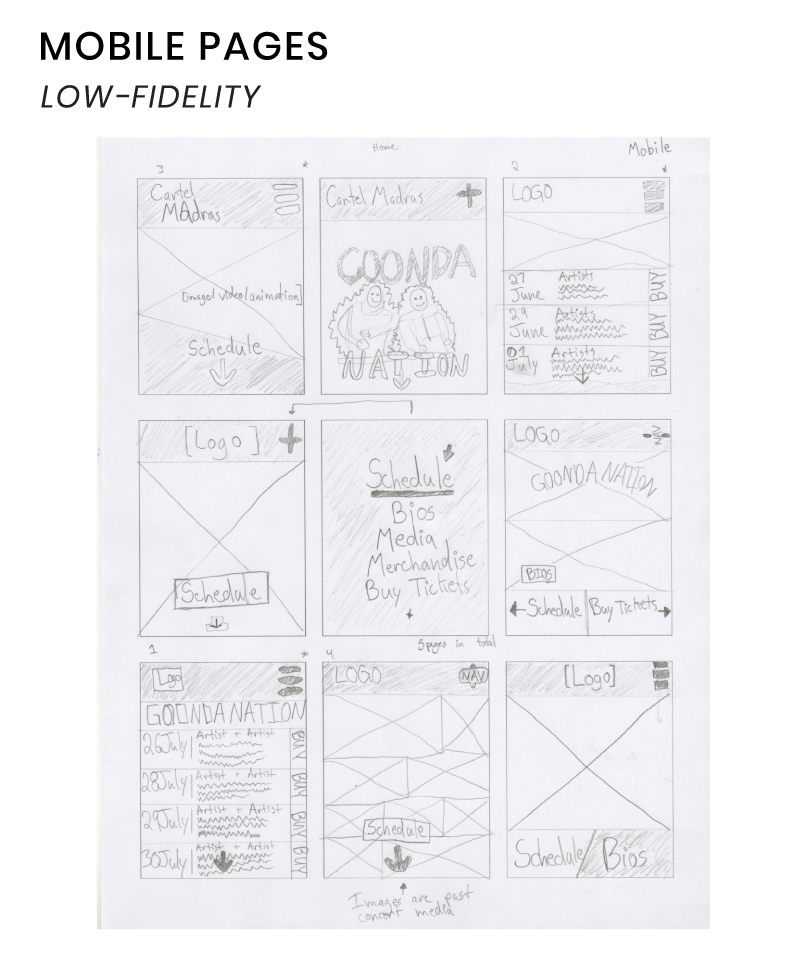 MOBILE PAGES
LOW-FIDELITY
Home
Mobile
3
Cartel
MAdras
[image/video/animation]
Schedule
Cartel Madras
GOONDA
NATION
2
LOGO
27
June
Artists
BUY
29
June
Artists
BUY
01
July
Artists
BUY
[Logo]
Schedule
Schedule
Bios
Media
Merchandise
Buy Tickets
5 pages in total
LOGO
NAV
GOONDA NATION
BIOS
Schedule
Buy Tickets
1
Logo
GOONDA NATION
26 July
Artist + Artist
BUY
28 July
Artist + Artist
BUY
29 July
Artist + Artist
BUY
30 July
Artist + Artist
BUY
4
LOGO
NAV
Schedule
Images are past
concert media
[Logo]
Schedule/Bios